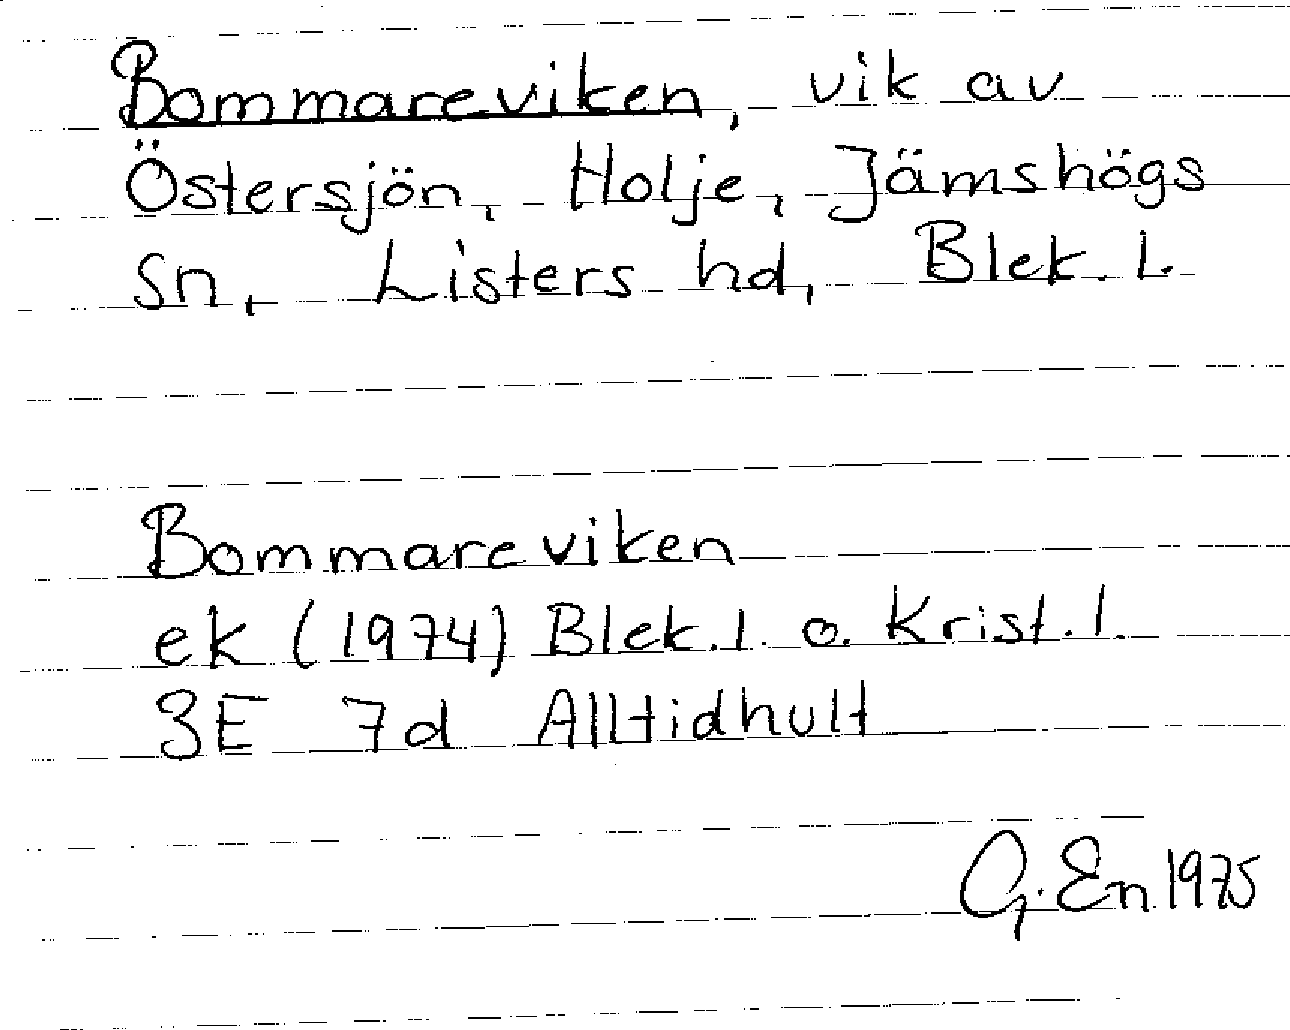 Bommareviken, vik av
Östersjön, Holje, Jämshögs
sn, Listers hd, Blek. l.
Bommareviken
ek (1974) Blek. l. o. Krist. l.
3E 7d Alltidhult
G. En 1975